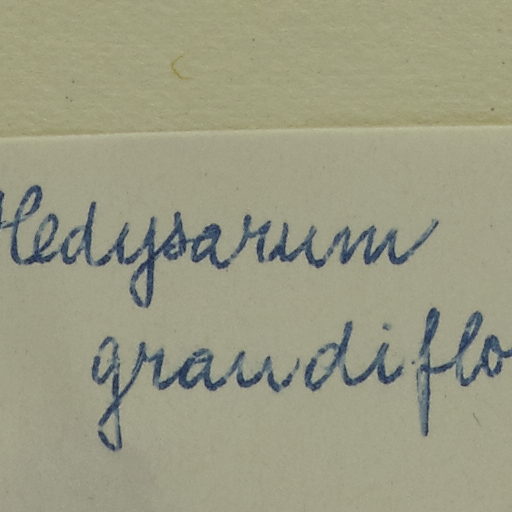 Hedysarum
grandiflo